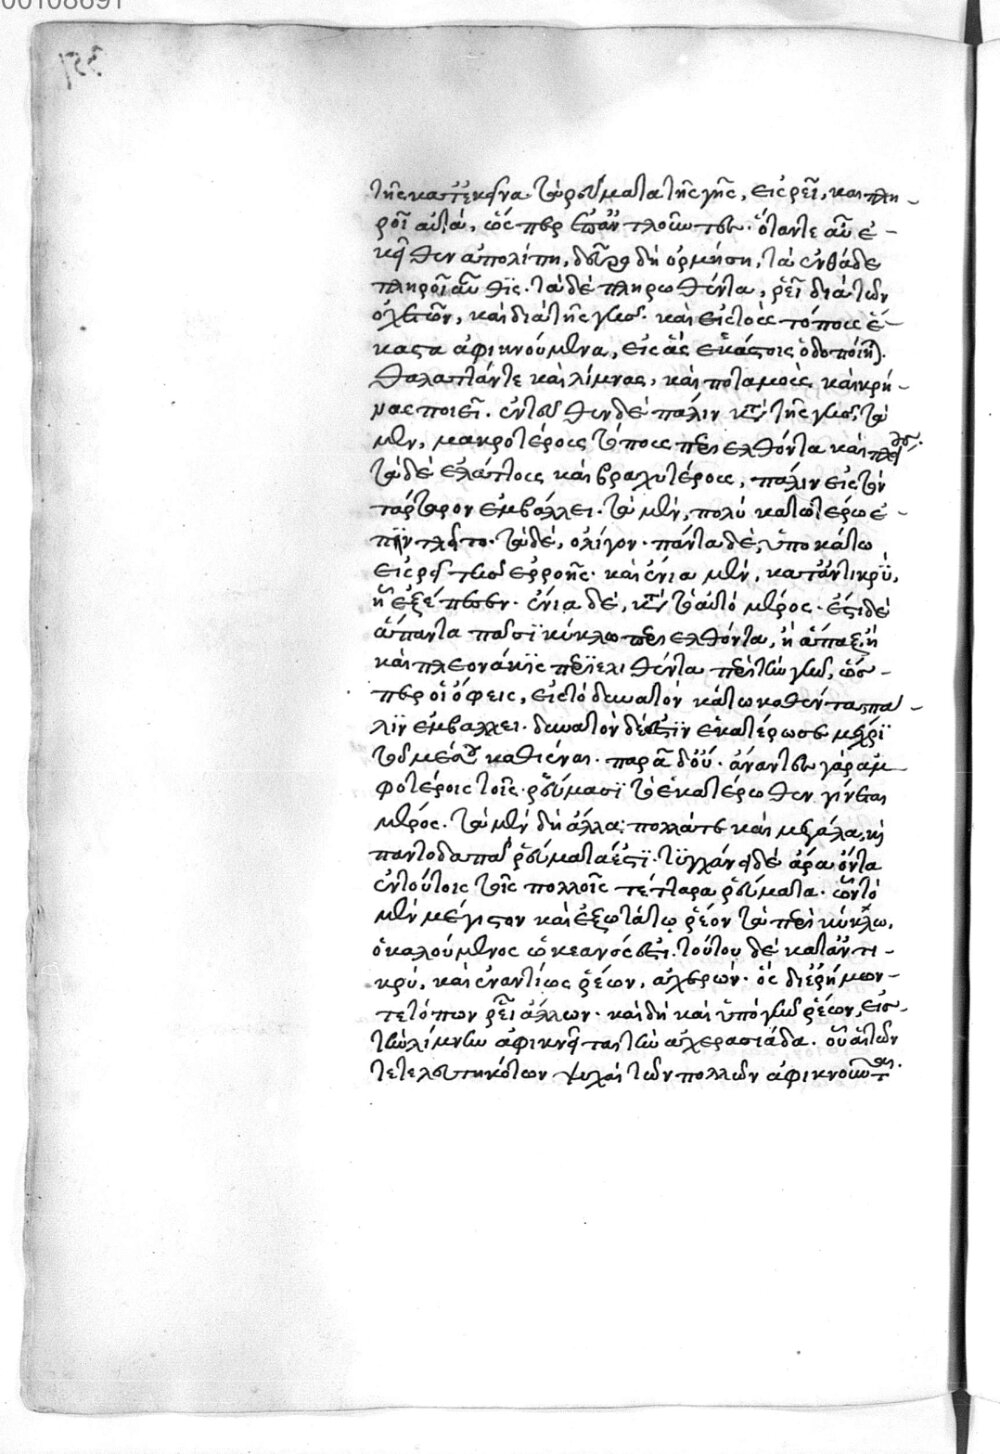 00108691
351
τῆς κατ' ἐκεῖνα τὰ ῥεύματα τῆς γῆς, εἰσρεῖ, καὶ πλη-
ροῖ αὐτά, ὥσπερ ἐπαντλοῦντες. ὅταν τε αὖ ἐ-
κεῖθεν ἀπολίπη, δεῦρο δὴ ὁρμήση, τὰ ἐνθάδε
πληροῖ αὖθις. τὰ δὲ πληρωθέντα, ῥεῖ διὰ τῶν
ὀχετῶν, καὶ διὰ τῆς γῆς. καὶ εἰς τοὺς τόπους ἕ-
καστα ἀφικνούμενα, εἰς ἃς ἑκάστοις ὁδοποίηται.
θαλάττάν τε καὶ λίμνας, καὶ ποταμοὺς, καὶ κρή-
νας ποιεῖ. ἐντεῦθεν δὲ πάλιν κατὰ τῆς γῆς, τὰ
μὲν, μακροτέρους τόπους περιελθόντα καὶ πλείους.
τὰ δὲ ἐλάττους καὶ βραχυτέρους, πάλιν εἰς τὸν
τάρταρον ἐμβάλλει. τὰ μὲν, πολὺ κατωτέρω ἐ-
πηντλεῖτο. τὰ δὲ, ὀλίγον. πάντα δὲ, ὑποκάτω
εἰσρεῖ τῆς ἐρροῆς. καὶ ἔνια μὲν, καταντικρὺ,
ἢ ἐξέπεσεν. ἔνια δὲ, κατὰ τὸ αὐτὸ μέρος. ἔστι δὲ
ἅπαντα παὶσὶ κύκλω περιελθόντα, ἢ ἅπαξ, ἢ
καὶ πλεονάκις περιελιχθέντα περὶ τὴν γῆν, ὥσ-
περ οἱ ὄφεις, εἰς τὸ δυνατὸν κάτω καθέντα, πά-
λιν ἐμβάλλει. δυνατὸν δέ ἐστιν ἑκατέρωσε μέχρι
τοῦ μέσου καθιέναι. πάρα δ' οὔ. ἄναντες γὰρ ἀμ-
φοτέροις τοῖς ῥεύμασι τὸ ἑκατέρωθεν γίνεται
μέρος. τὰ μὲν δὴ ἄλλα, πολλά τε καὶ μεγάλα, καὶ
παντοδαπὰ ῥεύματά ἐστι. τυγχάνει δὲ ἄρα ὄντα
ἐν τούτοις τοῖς πολλοῖς τέτταρα ῥεύματα. ὧν τὸ
μὲν μέγιστον καὶ ἐξωτάτω ῥέον τὰ περὶ κύκλω,
ὁ καλούμενος ὠκεανός ἐστι. τούτου δὲ καταντι-
κρὺ, καὶ ἐναντίως ῥέων, ἀχερών. ὃς δι' ἐρήμων-
τε τόπων ῥεῖ ἄλλων. καὶ δὴ καὶ ὑπὸ γῆν ῥέων, εἰς
τὴν λίμνην ἀφικνεῖται τὴν ἀχερασιάδα. οὗ αἱ τῶν
τετελευτηκότων ψυχαὶ τῶν πολλῶν ἀφικνοῦνται.